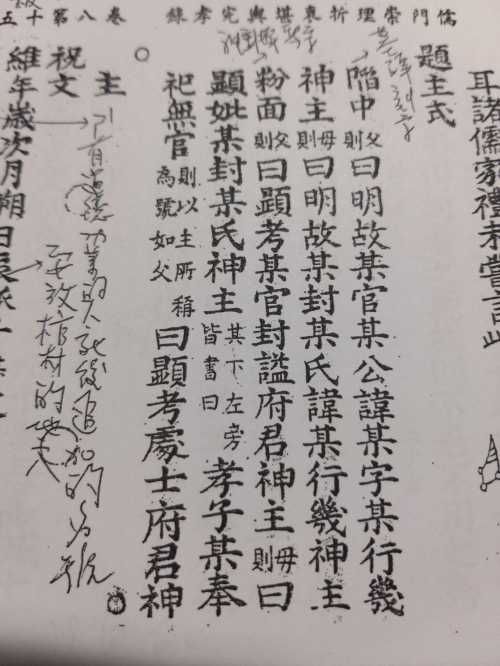 儒門崇理折衷堪輿完孝錄 卷八 第十五
耳諸儒家禮未嘗言此
題主式
陷中父則曰明故某官某公諱某字某行幾
神主母則曰明故某封某氏諱某行幾神主
粉面父則曰顯考某官封謚府君神主母則曰
顯妣某封某氏神主其下左旁皆書曰孝子某奉
祀無官則以主所稱為號如父曰顯考處士府君神
主
祝文
維年歲次月朔日辰
死後追加的名號
安放棺材的地